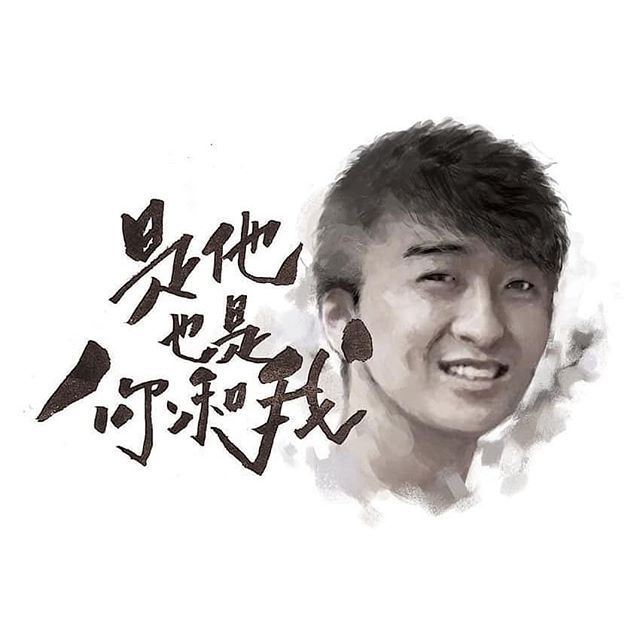 是他
也是
你和我